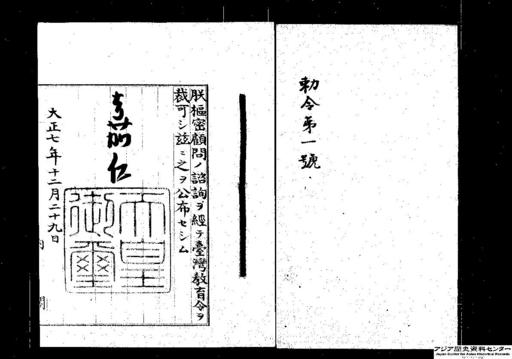 勅令第一號
朕樞密顧問ノ諮詢ヲ經テ臺灣教育令ヲ
裁可シ茲ニ之ヲ公布セシム
嘉仁
天皇
御璽
大正七年十二月二十九日
内閣
アジア歴史資料センター
Japan Center for Asian Historical Records